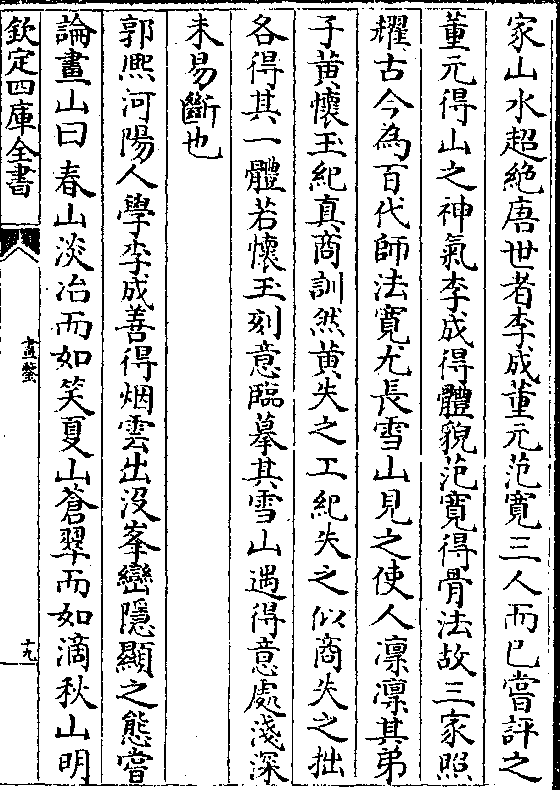 家山水超絶唐世者李成董元范寛三人而已嘗評之
董元得山之神氣李成得體貌范寛得骨法故三家照
耀古今為百代師法寛尤長雪山見之使人凛凛其弟
子黄懷玉紀真商訓然黄失之工紀失之似商失之拙
各得其一體若懷玉刻意臨摹其雪山遇得意處淺深
未易斷也
郭熈河陽人學李成善得烟雲出没峯巒隱顯之態嘗
論畫山曰春山淡冶而如笑夏山蒼翠而如滴秋山明
欽定四庫全書
畫鑒
十九